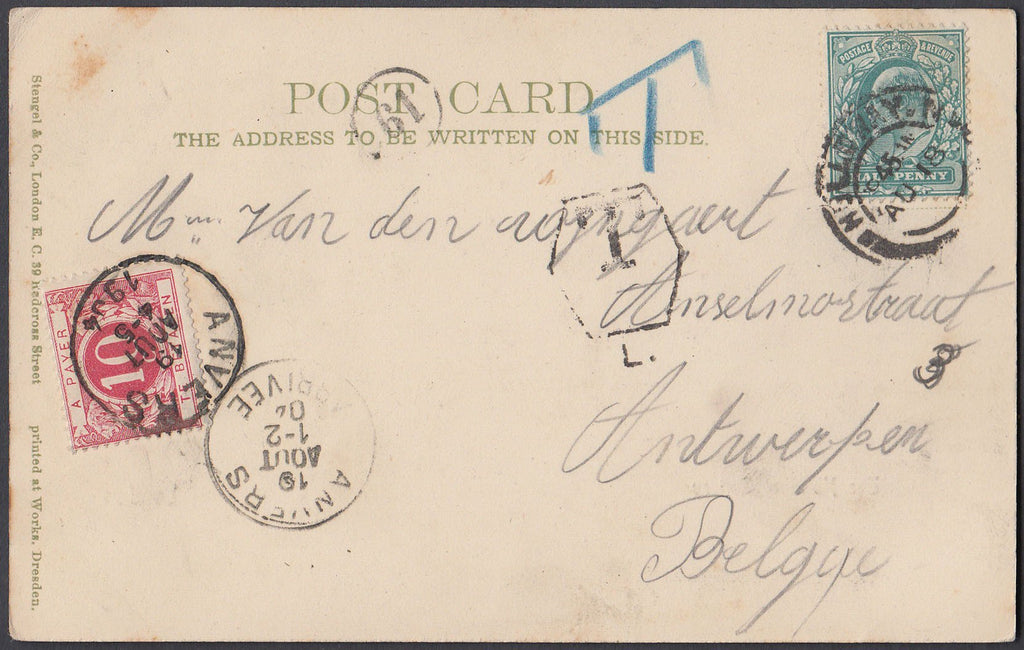 POST CARD
THE ADDRESS TO BE WRITTEN ON THIS SIDE.
POSTAGE & REVENUE
HALF PENNY
AU 18
61
T
T
L.
Van den
Anselmostraat
3
Antwerpen
Belgye
A PAYER
10
TE BETALEN
ANVERS
19
AOUT
4-5
1904
ANVERS
19
AOUT
1-2
ARRIVEE
Stengel & Co., London E. C. 39 Redcross Street printed at Works, Dresden.